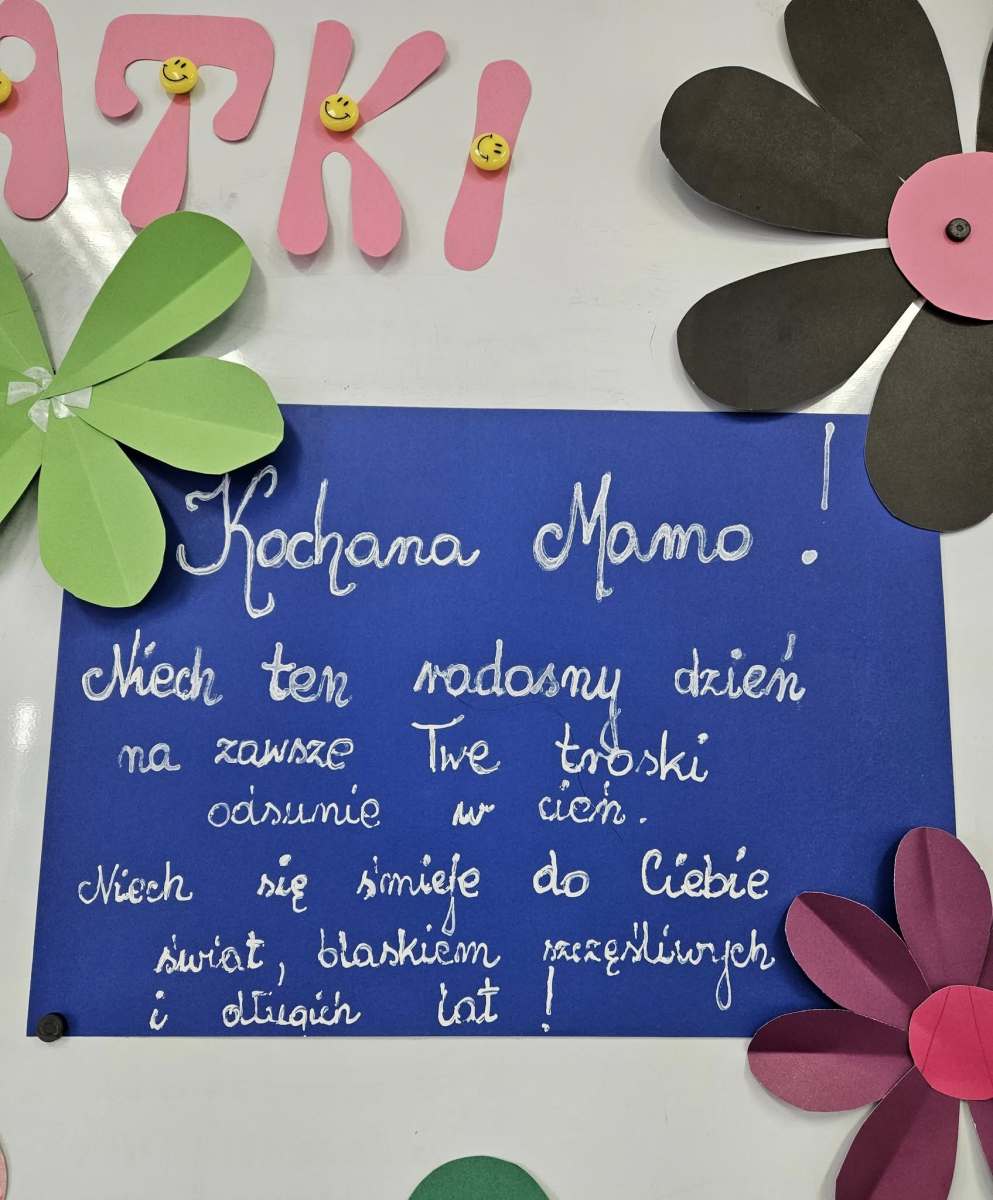 ATKI
Kochana Mamo!
Niech ten radosny dzień
na zawsze Twe troski
odsunie w cień.
Niech się śmieje do Ciebie
świat, blaskiem szczęśliwych
i długich lat!